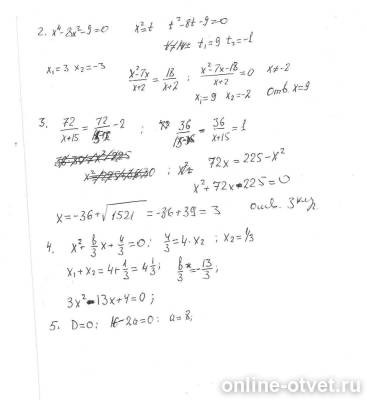 2. x⁴-8x²-9=0 x²=t t²-8t-9=0
t₁=9 t₂=-1
x₁=3 x₂=-3 x²-7x/x+2 = 18/x+2 ; x²-7x-18/x+2 = 0 x≠-2
x₁=9 x₂=-2 Отв. x=9
3. 72/x+15 = 72/15-x - 2 ; 36/15-x - 36/x+15 = 1
72x=225-x²
x²+72x-225=0
x=-36+√1521=-36+39=3 отв. 3 км/
4. x²+b/3x+4/3=0; 4/3=4·x₂ ; x₂=1/3
x₁+x₂=4+1/3=4 1/3; b/3=-13/3;
3x²-13x+4=0;
5. D=0; 16-2a=0; a=8;
online-otvet.ru